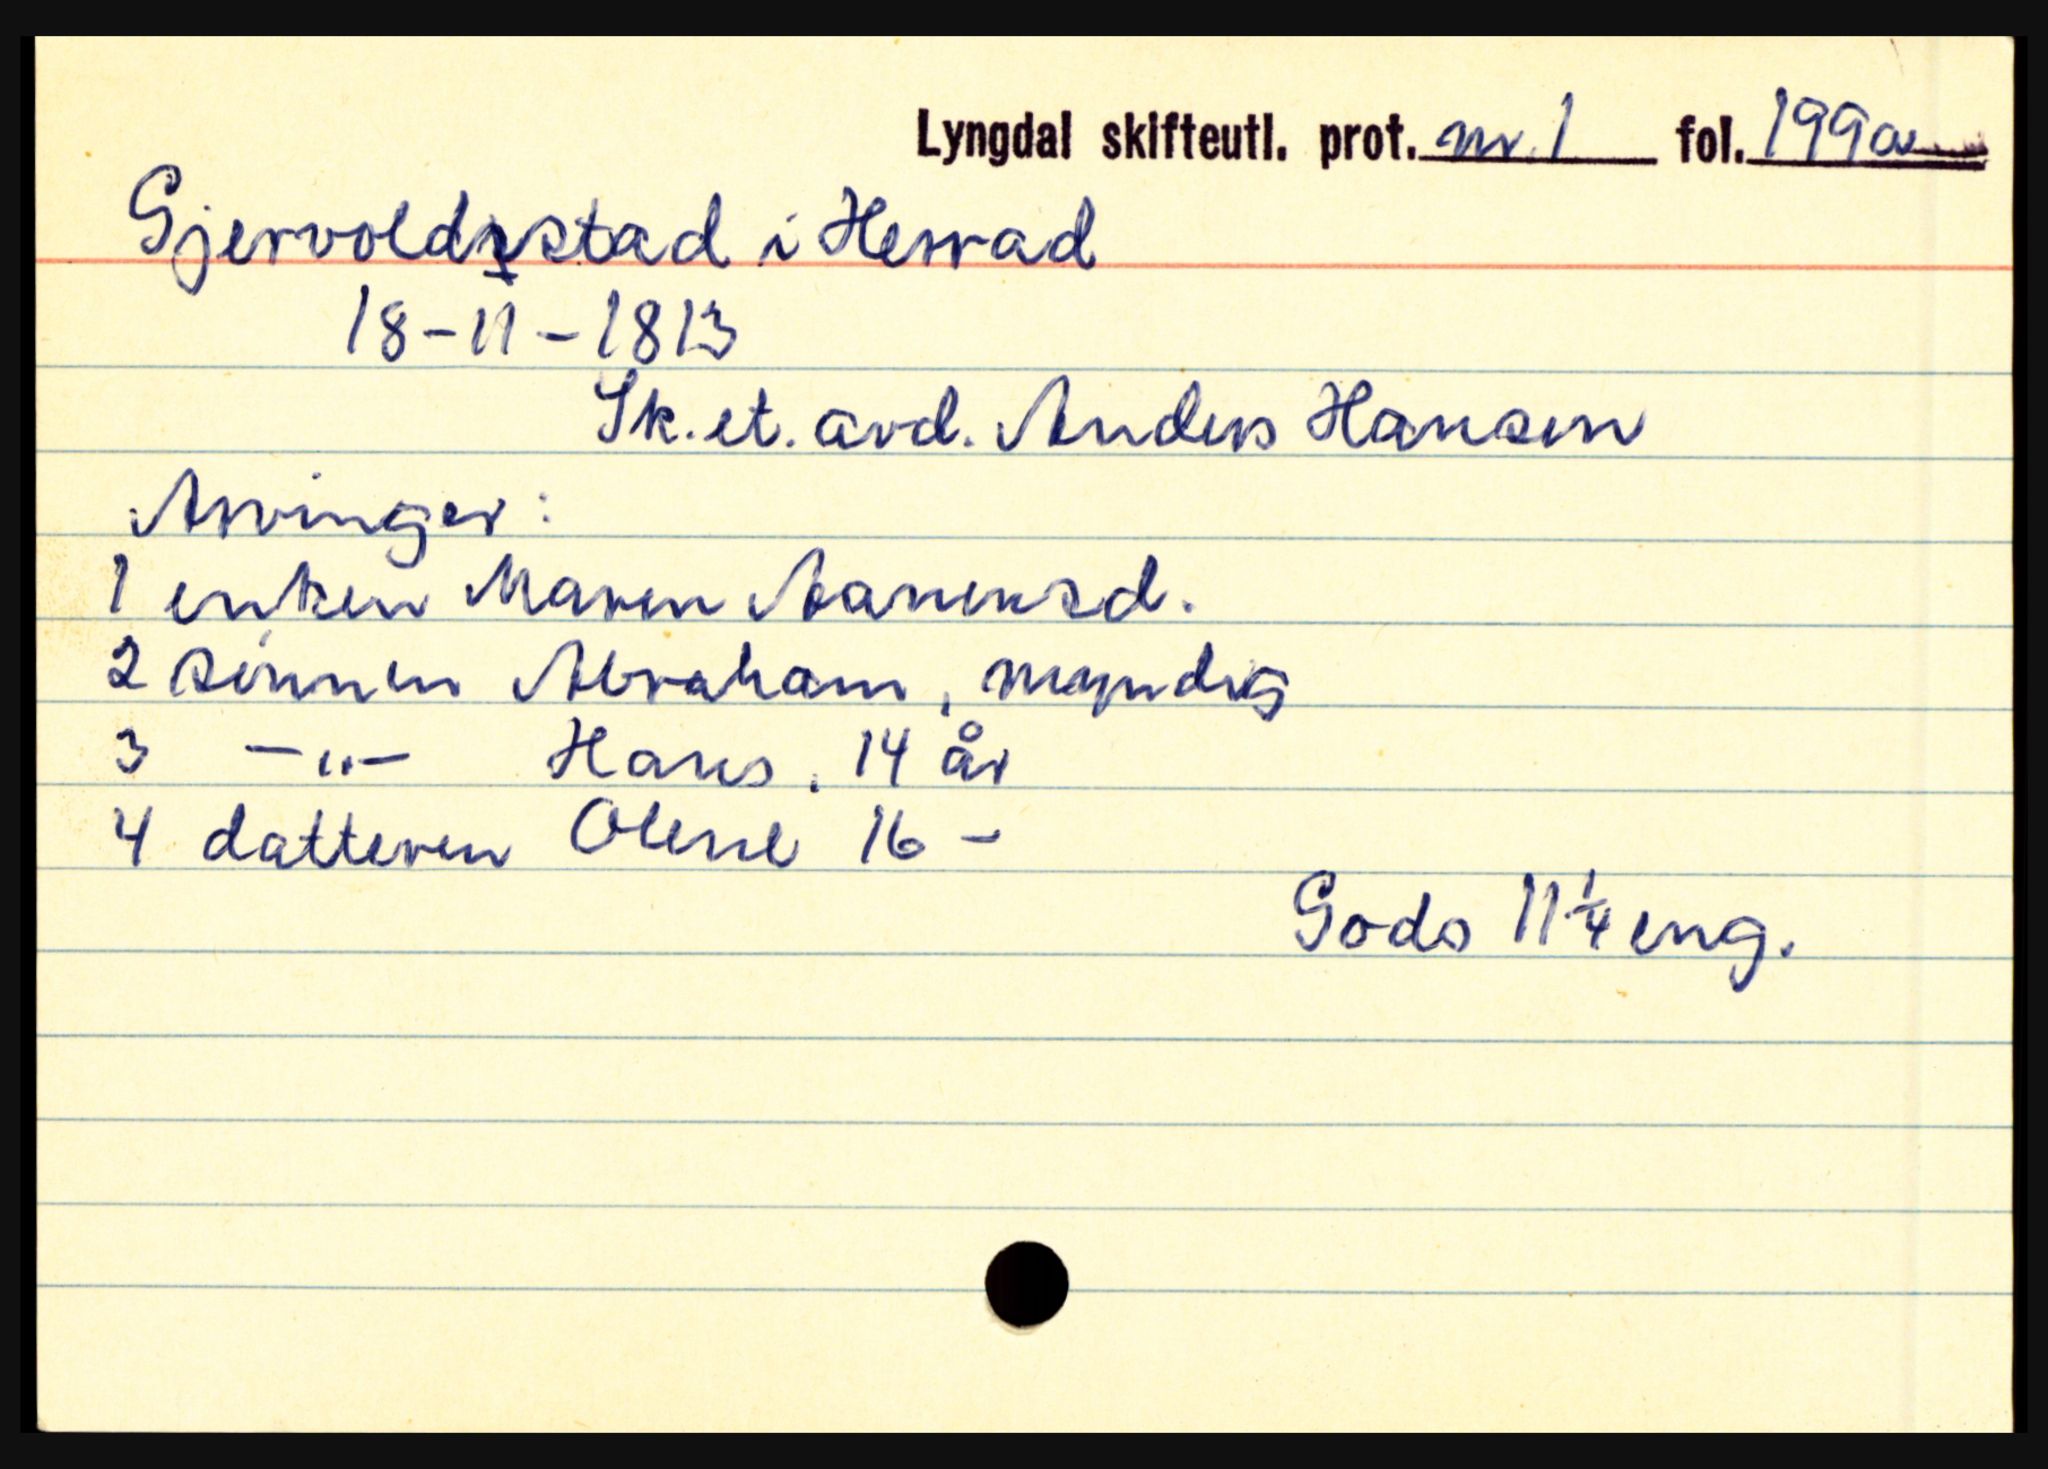 Lyngdal skifteutl. prot. nr. 1 fol. 199a
Gjervoldstad i Herrad
18-11-1813
Sk. et. avd. Anders Hansen
Arvinger:
1 enken Maren Aanensd.
2 sønnen Abraham, myndig
3 -"- Hans, 14 år
4 datteren Olene 16 -
Gods 11 1/4 eng.